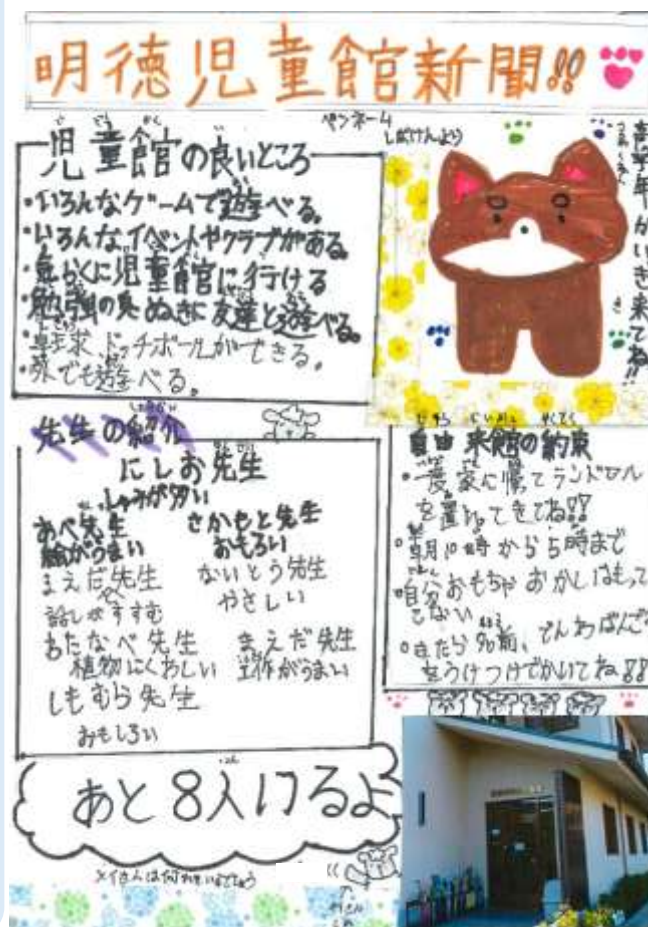 明徳児童館新聞!!
ペンネーム
しばけんよう
児童館の良いところ
・いろんなゲームで遊べる。
・いろんなイベントやクラブがある。
・気らくに児童館に行ける
・勉強の息ぬきに友達と遊べる。
・卓球、ドッチボールができる。
・誰でも遊べる。
高学年がいき来てね!!
先生の紹介
にしお先生
しゅみが多い
あべ先生
絵がうまい
さかもと先生
おもろい
まえだ先生
話しがすすむ
ないとう先生
やさしい
わたなべ先生
植物にくわしい
まえだ先生
工作がうまい
しもむら先生
おもしろい
自由来館の約束
・一度家に帰てランドセル
を置いてきてね!!
・朝10時から5時まで
・自分おもちゃおかしはもって
こない
・きたら名前、でんわばんご
をうけつけでかいてね!!
あと8人いるよ